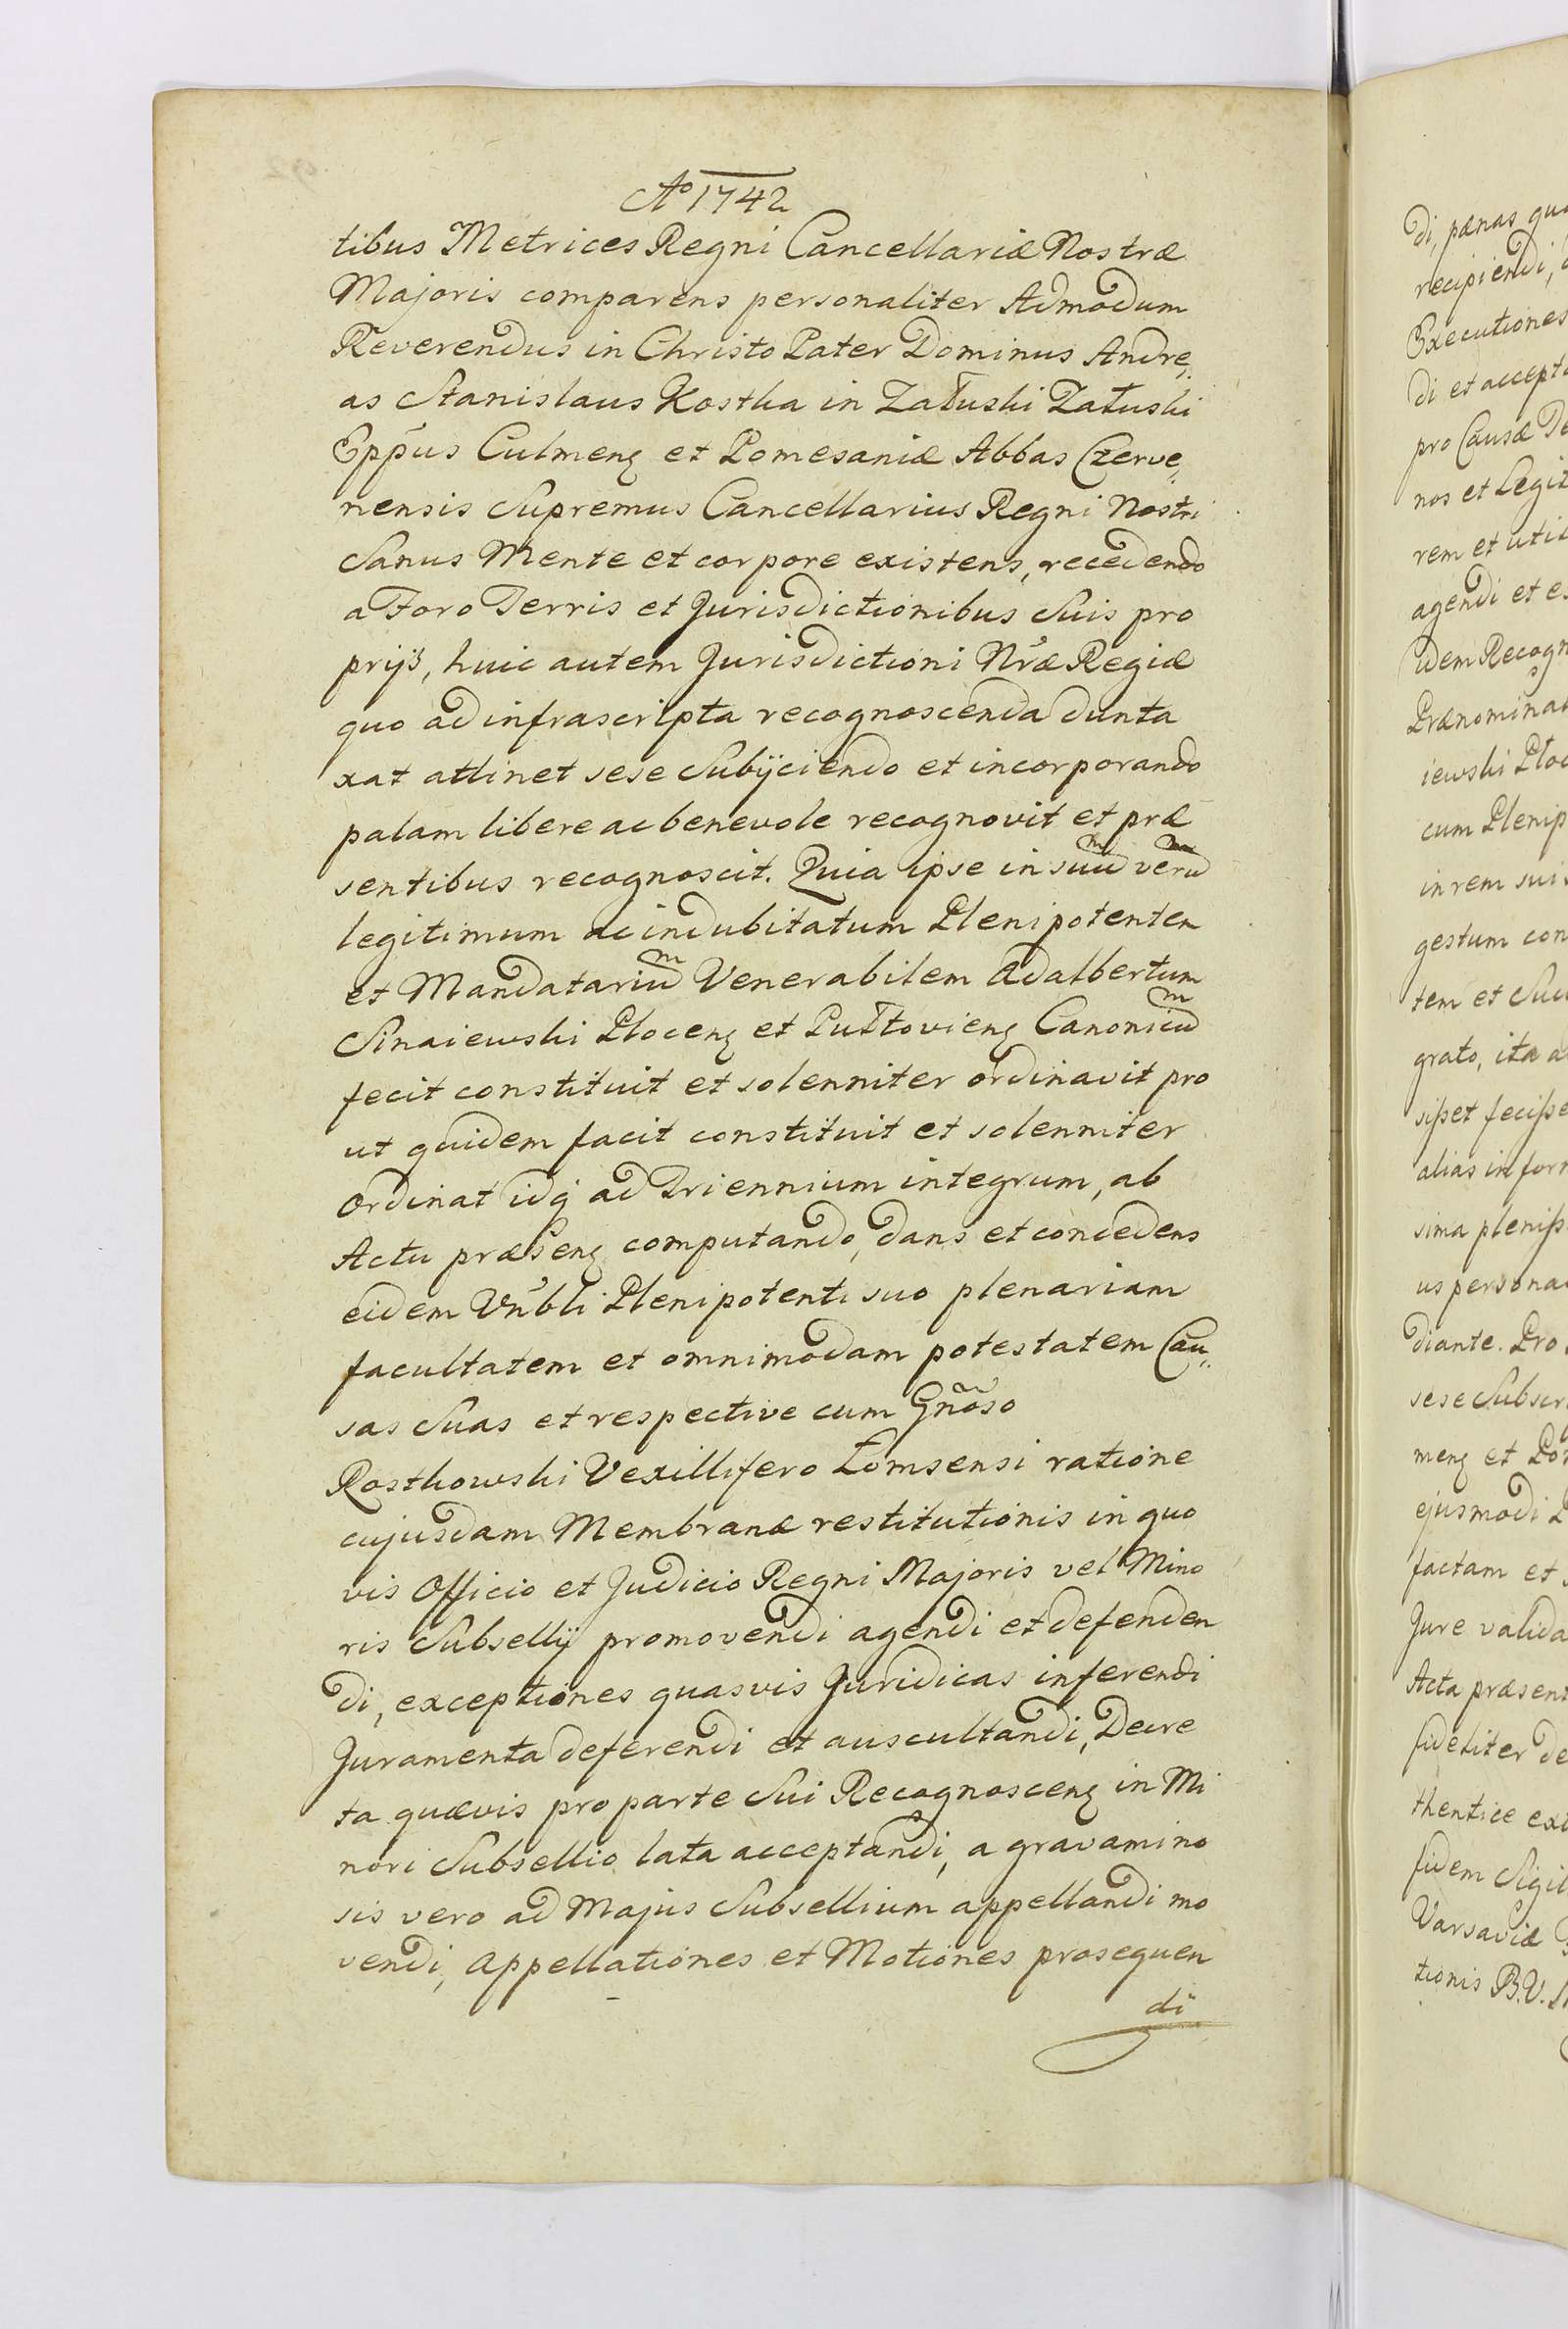 Aº 1742
tibus Metrices Regni Cancellariæ Nostræ
Majoris comparens personaliter Admodum
Reverendus in Christo Pater Dominus Andre,,
as Stanislaus Kostka in Załuski Załuski
Eppũs Culmenẽ et Pomesaniæ Abbas Czerve,,
nensis Supremus Cancellarius Regni Nostri
Sanus Mente et corpore existens, recedendo
a Foro Terris et Jurisdictionibus Suis pro
prijs, huic autem Jurisdictioni Nr̃æ Regiæ
quo ad infrascripta recognoscenda dunta
xat attinet sese Subijciendo et incorporando
palam libere ac benevole recognovit et præ
sentibus recognoscit. Quia ipse in suũ verũ
legitimum ac indubitatum Plenipotentem
et Mandatariũ Venerabilem Adalbertum
Sinaiewski Plocenẽ et Pułtovienẽ Canonicũ
fecit constituit et solenniter ordinavit pro
ut quidem facit constituit et solenniter
ordinat idq́ ad Triennium integrum, ab
Actu præsenẽ computando, dans et concedens
eidem Vn̓bli Plenipotenti suo plenariam
facultatem et omnimodam potestatem Cau,,
sas Suas et respective cum Gñoso
Rostkowski Vexillifero Łomsensi ratione
cujusdam Membranæ restitutionis in quo
vis Officio et Judicio Regni Majoris vel Mino
ris Subsellij promovendi agendi et defenden
di, exceptiones quasvis Juridicas inferendi
Juramenta deferendi et auscultandi, Decre
ta quævis pro parte Sui Recognoscenẽ in Mi
nori Subsellio lata acceptandi, a gravamino
sis vero ad Majus Subsellium appellandi mo
vendi, Appellationes et Motiones prosequen
di
di, pænas
recipiendi,
Executiones
di et accept
pro Causæ
nos et Legit
rem et uti
agendi et
idem Recogn
Prænomina
iewski Ploc
cum Plenip
in rem sui
gestum con
tem et
grato, ita
sißet feciße
alias in for
sima pleniß
us persona
diante. Pro
sese Subscr
menẽ et
ejusmodi
factam et
Jure valida
Acta præsen
fideliter de
thentice ex
fidem Sigil
Varsaviæ
tionis B. V.